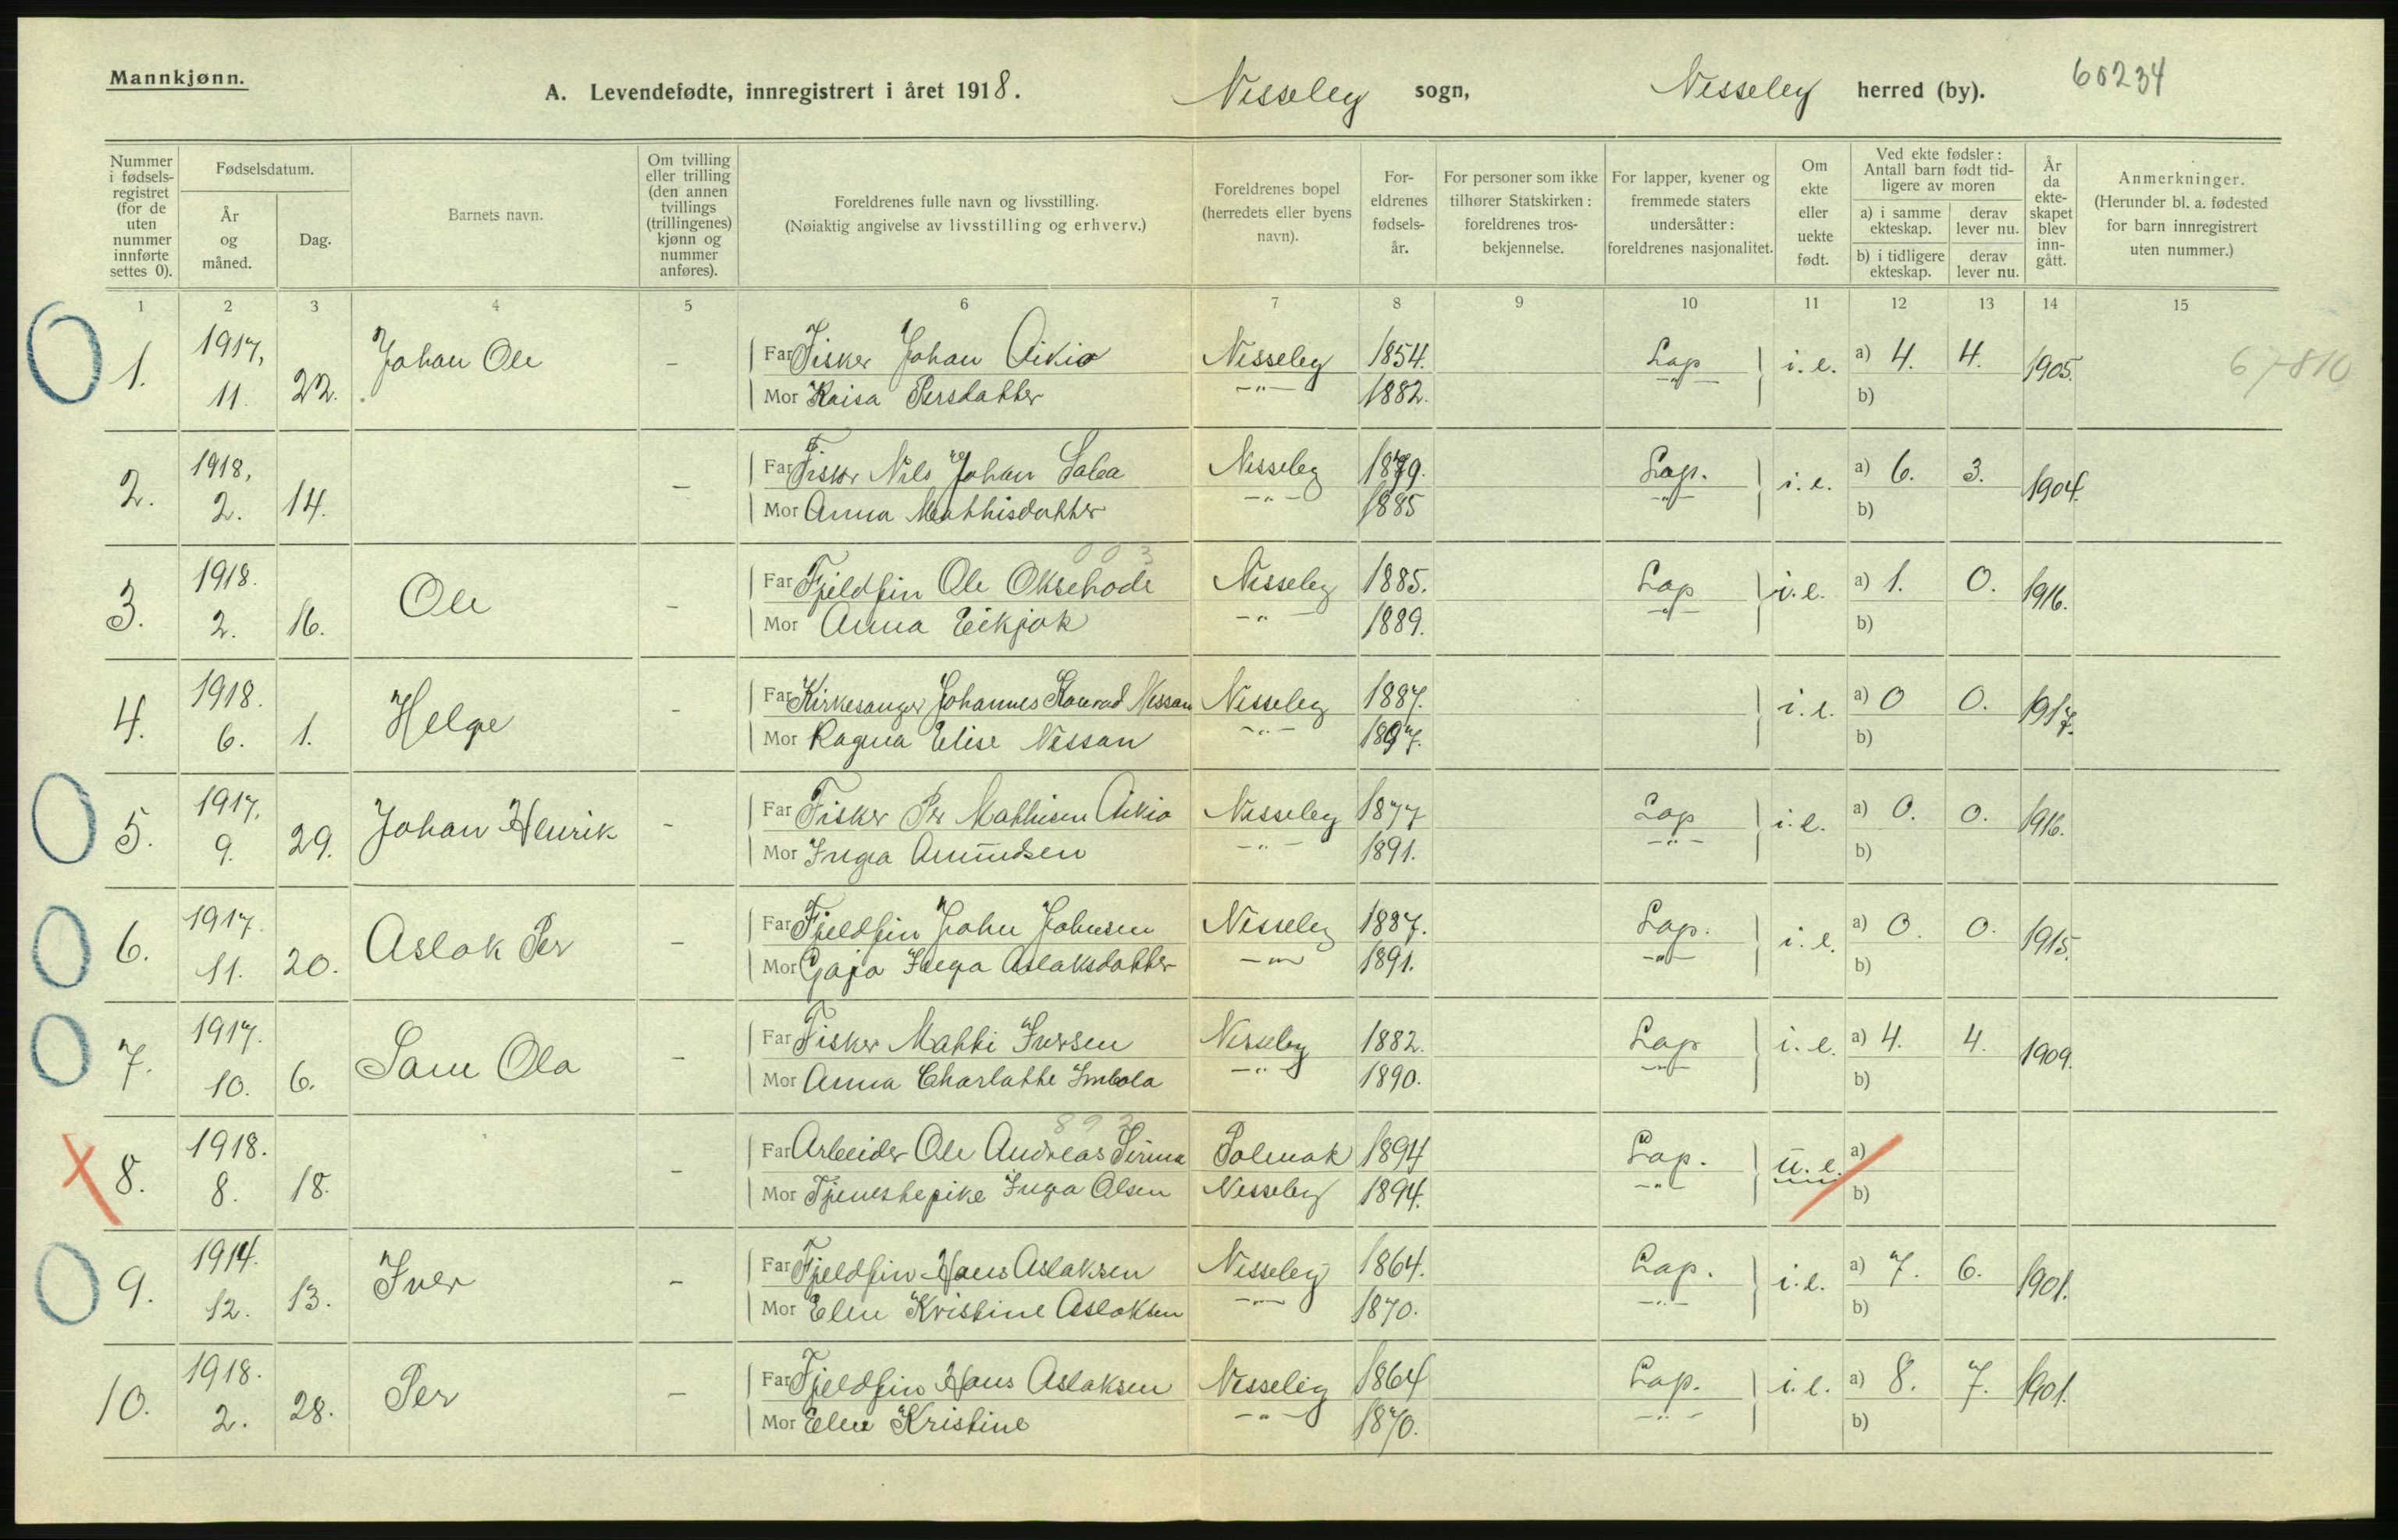 Mannkjønn.
A. Levendefødte, innregistrert i året 1918. Nesseby sogn, Nesseby herred (by). 60234
Nummer i fødsels-registret (for de uten nummer innførte settes 0).
Fødselsdatum.
År og måned.
Dag.
Barnets navn.
Om tvilling eller trilling (den annen tvillings (trillingenes) kjønn og nummer anføres).
Foreldrenes fulle navn og livsstilling.
(Nøiaktig angivelse av livsstilling og erhverv.)
Foreldrenes bopel (herredets eller byens navn).
For-eldrenes fødsels-år.
For personer som ikke tilhører Statskirken: foreldrenes tros-bekjennelse.
For lapper, kvener og fremmede staters undersåtter: foreldrenes nasjonalitet.
Om ekte eller uekte født.
Ved ekte fødsler: Antall barn født tid-ligere av moren
a) i samme ekteskap. derav lever nu.
b) i tidligere ekteskap. derav lever nu.
År da ekte-skapet blev inn-gått.
Anmerkninger.
(Herunder bl. a. fødested for barn innregistrert uten nummer.)
1 2 3 4 5 6 7 8 9 10 11 12 13 14 15
1. 1917, 11. 22. Johan Ole - Far Fisker Johan Aikio Nesseby 1854. Lap i. e. a) 4. 4. 1905. 67810
Mor Kaisa Persdatter -"- 1882. -"- b)
2. 1918, 2. 14. - Far Fisker Nils Johan Saba Nesseby 1879. Lap. i. e. a) 6. 3. 1904.
Mor Anna Mathisdatter -"- 1885 -"- b)
003
3. 1918. 2. 16. Ole - Far Fjeldfin Ole Oksehode Nesseby 1885. Lap i. e. a) 1. 0. 1916.
Mor Anna Eikjok -"- 1889. -"- b)
4. 1918. 6. 1. Helge - Far Kirkesanger Johannes Konrad Nessan Nesseby 1887. i. e. a) 0 0. 1917.
Mor Ragna Elise Nessan -"- 1897. b)
5. 1917, 9. 29. Johan Henrik - Far Fisker Per Mathisen Aikio Nesseby 1877 Lap i. e. a) 0. 0. 1916.
Mor Inga Amundsen -"- 1891. -"- b)
6. 1917. 11. 20. Aslak Per - Far Fjeldfin John Johnsen Nesseby 1887. Lap. i. e. a) 0. 0. 1915.
Mor Gaja Inga Aslaksdatter -"- 1891. -"- b)
7. 1917. 10. 6. Sam Ola - Far Fisker Matti Iversen Nesseby 1882. Lap i. e. a) 4. 4. 1909.
Mor Anna Charlotte -"- 1890. -"- b)
892
8. 1918. 8. 18. - Far Arbeider Ole Andreas Sirma Polmak 1894 Lap. u. e. a)
Mor Tjenestepike Inga Olsen Nesseby 1894. -"- b)
9. 1914. 12. 13. Iver - Far Fjeldfin Hans Aslaksen Nesseby 1864. Lap. i. e. a) 7. 6. 1901.
Mor Elen Kristine Aslaksen -"- 1870. -"- b)
10. 1918. 2. 28. Per - Far Fjeldfin Hans Aslaksen Nesseby 1864 Lap. i. e. a) 8. 7. 1901.
Mor Elen Kristine -"- 1870. -"- b)